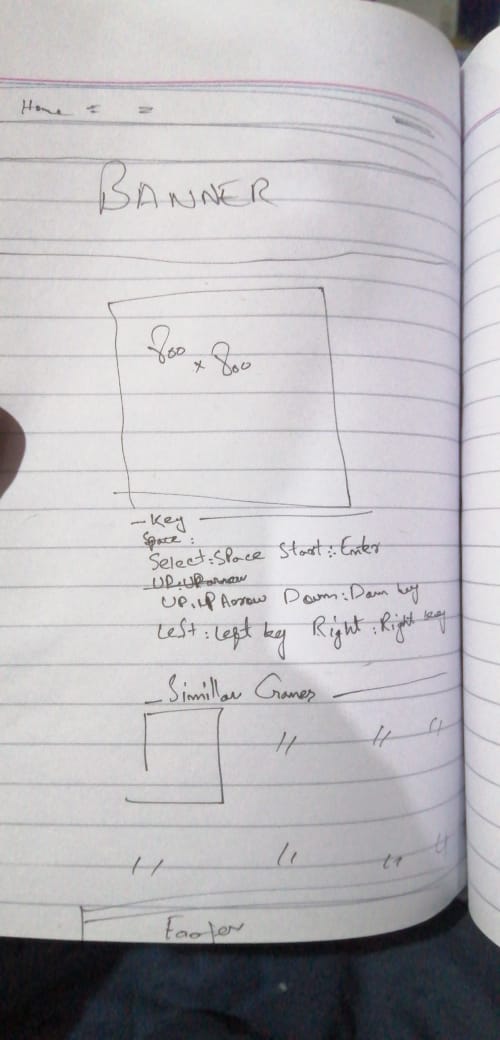 Home = =
BANNER
800 x 800
Key
Space :
Select : Space Start : Enter
UP : UP arrow
UP : UP Arrow Down : Down key
Left : Left key Right : Right key
Simillar Games
" " "
" " " "
Footer